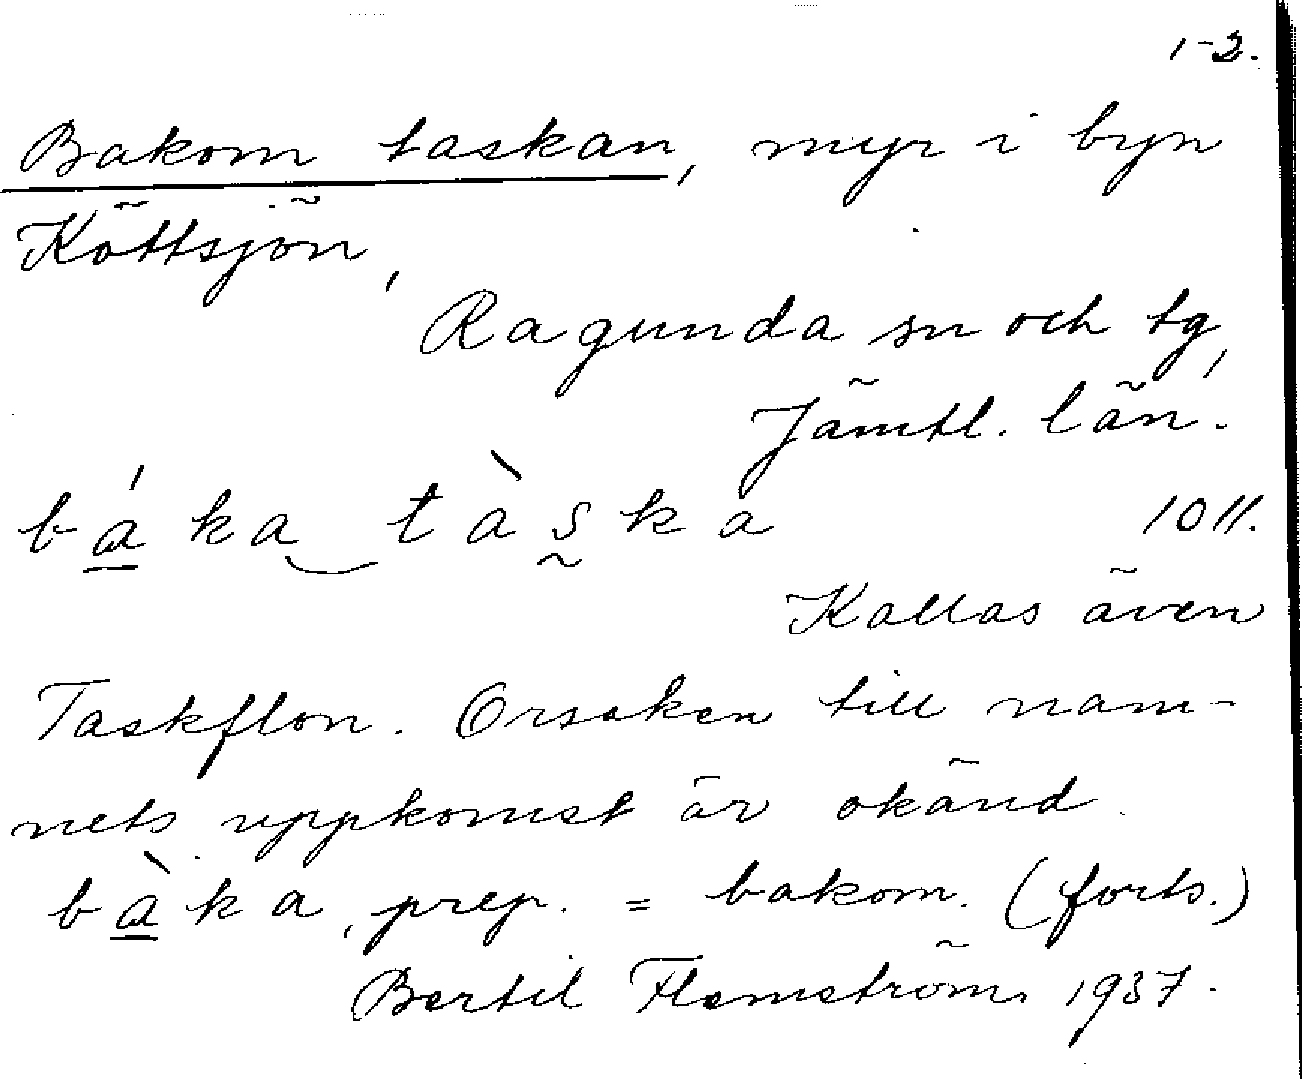 1-2.
Bakom taskan, myr i byn
Köttsjön,
Ragunda sn och tg,
Jämtl. län.
bá̱ka‿tàs̰ka 1011.
Kallas även
Taskflon. Orsaken till nam-
nets uppkomst är okänd.
bà̱ka, prep. = bakom. (forts.)
Bertil Flemström 1937.